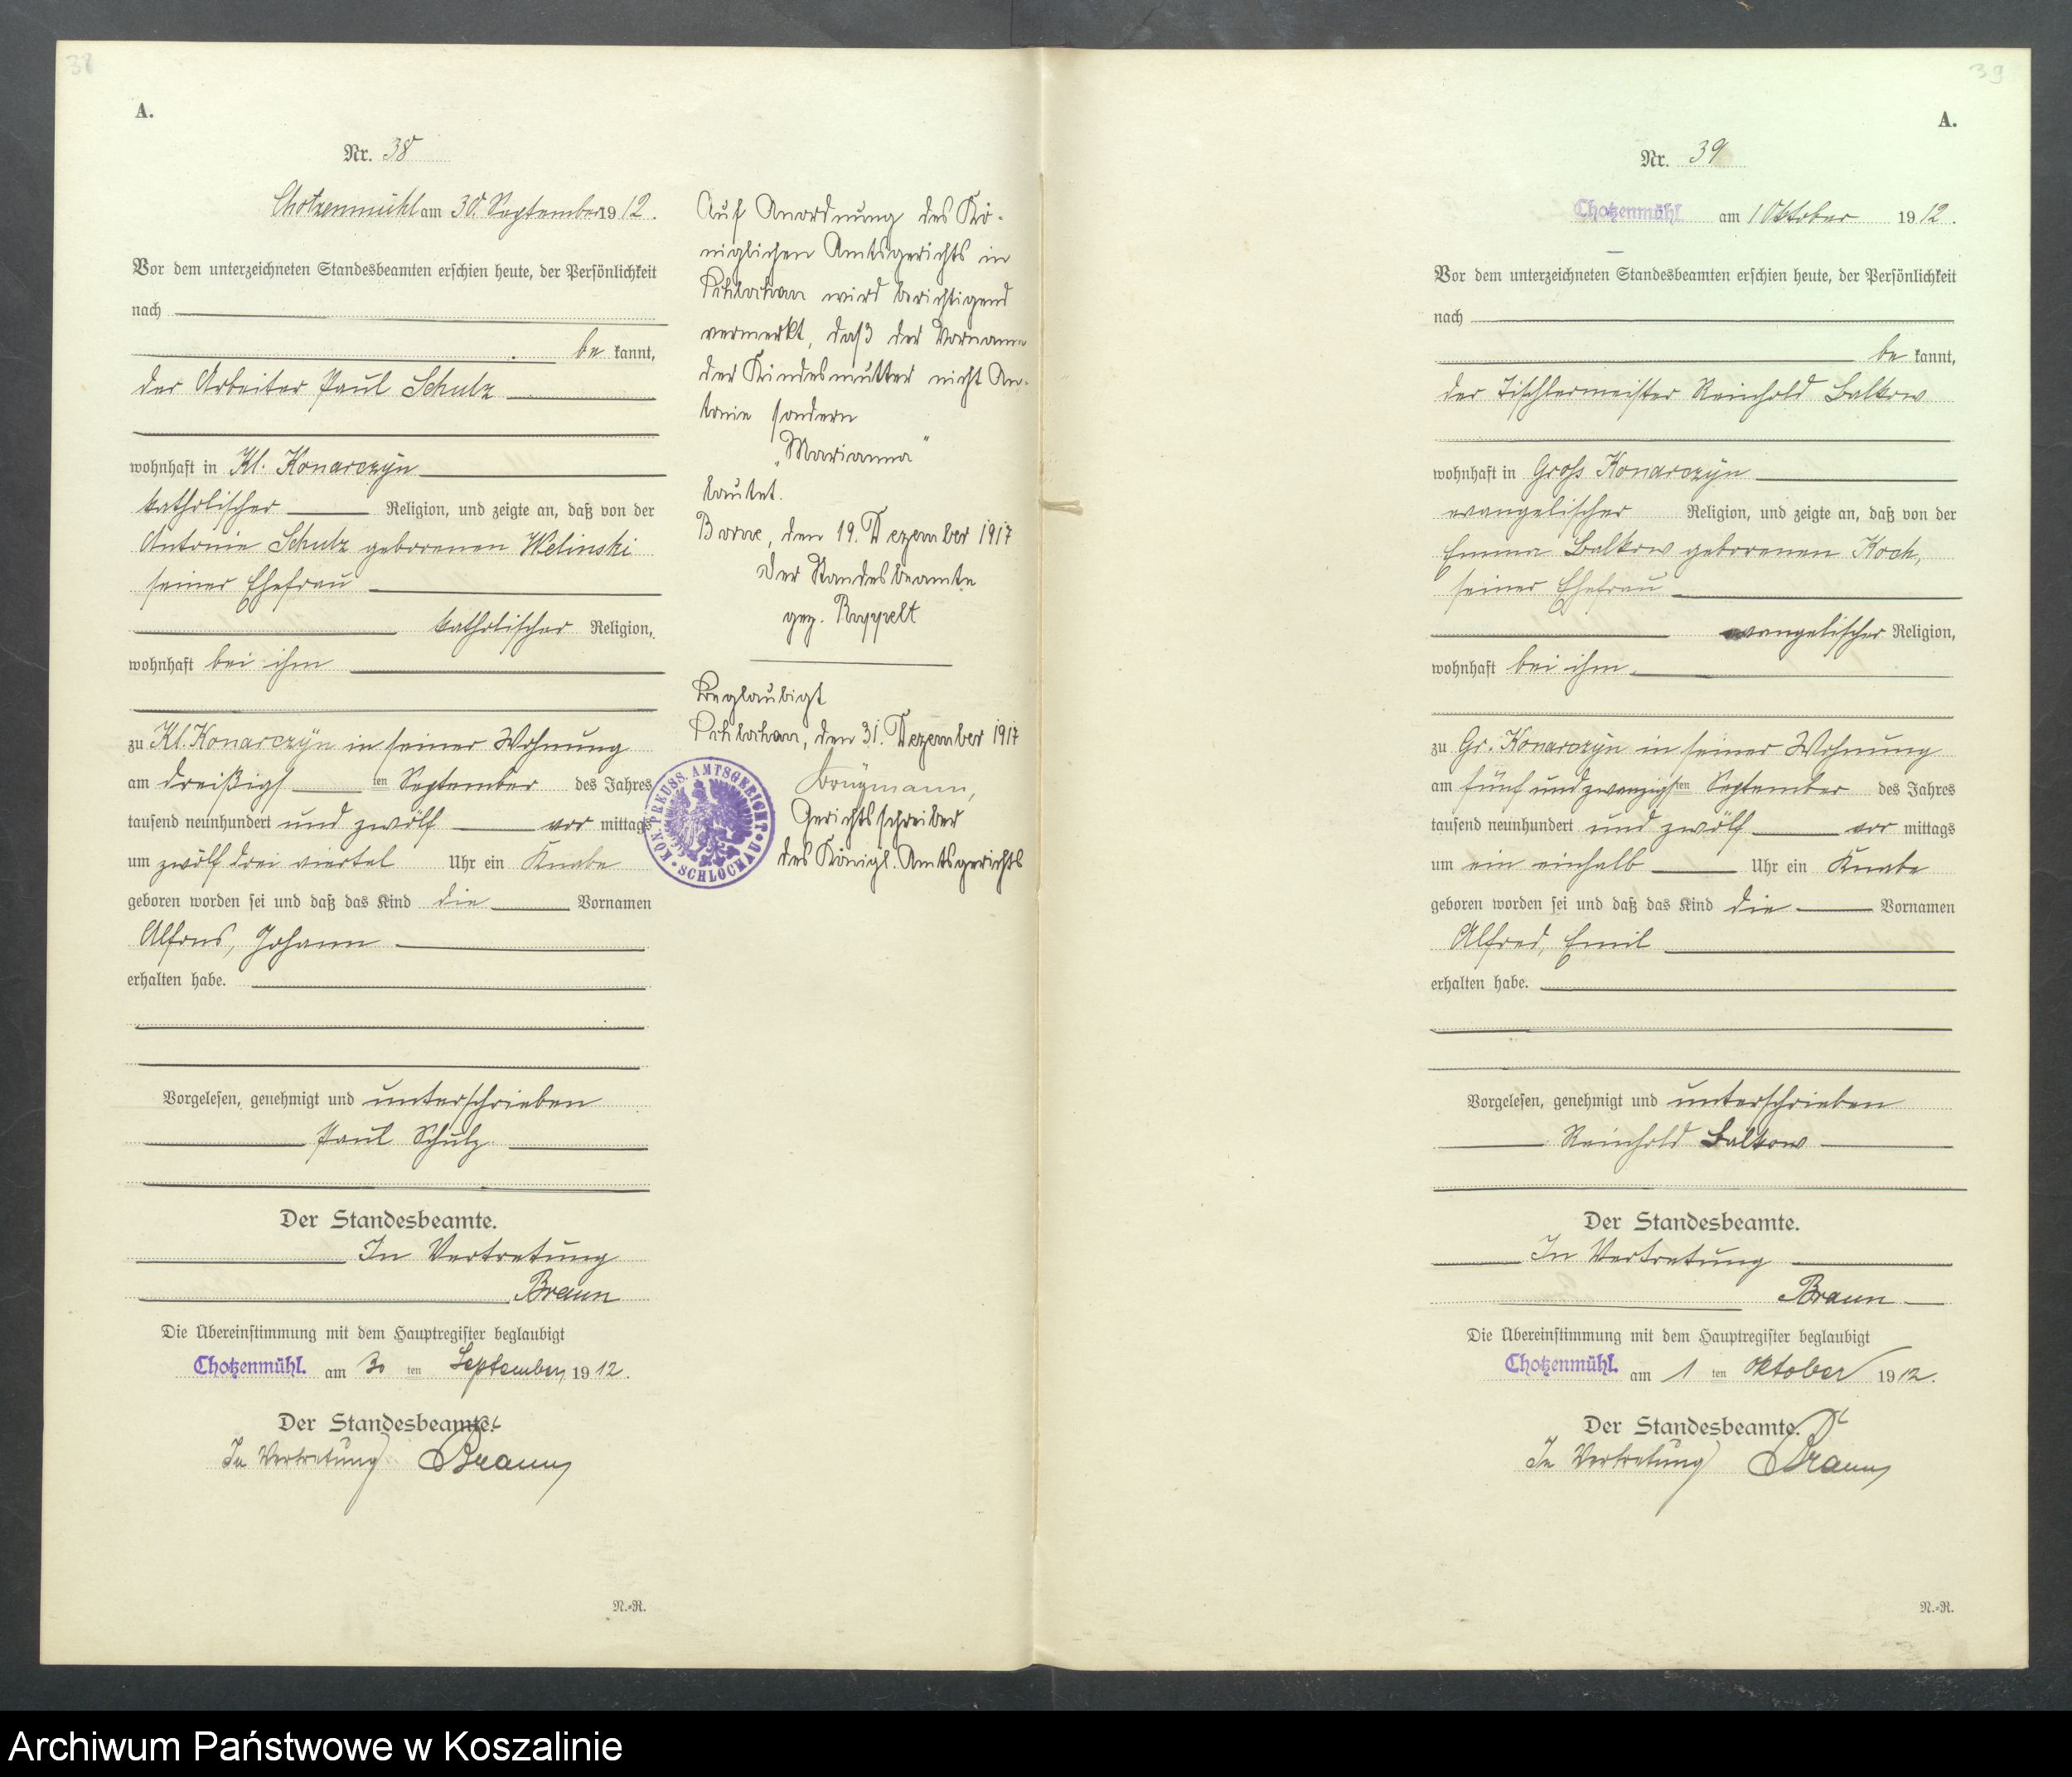 38
A.
Nr. 38
Chotzenmühl am 30. September 1912.
Vor dem unterzeichneten Standesbeamten erschien heute, der Persönlichkeit
nach
be kannt,
der Arbeiter Paul Schulz
wohnhaft in Kl. Konarczyn
katholischer Religion, und zeigte an, daß von der
Antonie Schulz geborenen Welinski
seiner Ehefrau
katholischer Religion,
wohnhaft bei ihm
zu Kl. Konarczyn in seiner Wohnung
am dreißigsten September des Jahres
tausend neunhundert und zwölf vor mittags
um zwölf drei viertel Uhr ein Knabe
geboren worden sei und daß das Kind die Vornamen
Alfons, Johann
erhalten habe.
Vorgelesen, genehmigt und unterschrieben
Paul Schulz
Der Standesbeamte.
In Vertretung
Braun
Die Übereinstimmung mit dem Hauptregister beglaubigt
Chotzenmühl. am 30 ten September 1912.
Der Standesbeamte.
In Vertretung Braun
N.-R.
Auf Anordnung des Kö-
niglichen Amtsgerichts in
Schlochau wird berichtigend
vermerkt, daß der Vorname
der Kindesmutter nicht An-
tonie sondern
"Marianna"
lautet.
Borne, den 19. Dezember 1917
Der Standesbeamte
gez. Rappelt
Beglaubigt
Schlochau, den 31. Dezember 1917
Brügmann,
Gerichtsschreiber
des Königl. Amtsgerichts
KÖN. PREUSS. AMTSGERICHT SCHLOCHAU
39
A.
Nr. 39
Chotzenmühl am 1 Oktober 1912.
Vor dem unterzeichneten Standesbeamten erschien heute, der Persönlichkeit
nach
be kannt,
der Tischlermeister Reinhold Balkow
wohnhaft in Groß Konarczyn
evangelischer Religion, und zeigte an, daß von der
Emma Balkow geborenen Koch,
seiner Ehefrau
evangelischer Religion,
wohnhaft bei ihm
zu Gr. Konarczyn in seiner Wohnung
am fünf und zwanzigsten September des Jahres
tausend neunhundert und zwölf vor mittags
um ein einhalb Uhr ein Knabe
geboren worden sei und daß das Kind die Vornamen
Alfred, Emil
erhalten habe.
Vorgelesen, genehmigt und unterschrieben
Reinhold Balkow
Der Standesbeamte.
In Vertretung
Braun
Die Übereinstimmung mit dem Hauptregister beglaubigt
Chotzenmühl. am 1 ten Oktober 1912.
Der Standesbeamte.
In Vertretung Braun
N.-R.
Archiwum Państwowe w Koszalinie